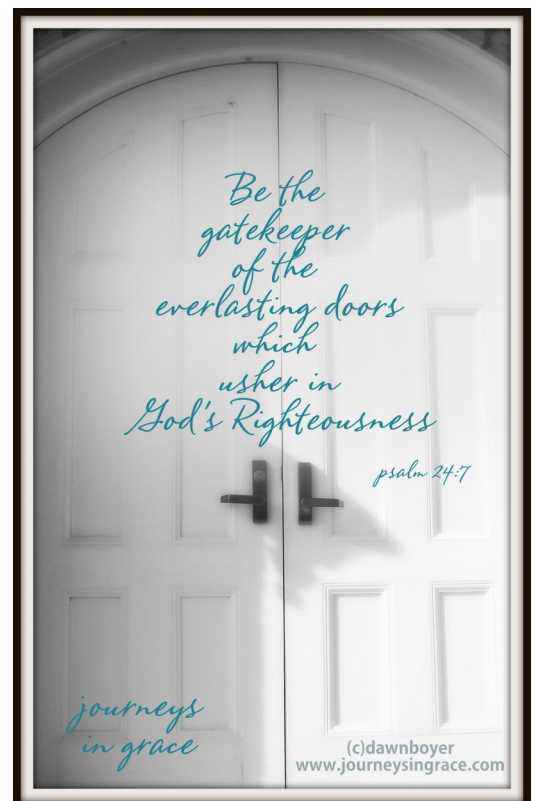 Be the
gatekeeper
of the
everlasting doors
which
usher in
God's Righteousness
psalm 24:7
journeys
in grace
(c)dawnboyer
www.journeysingrace.com